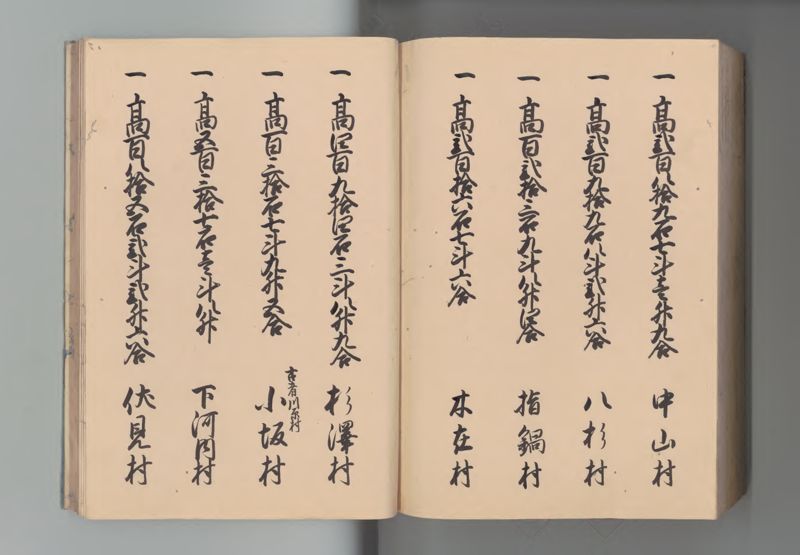 一 高弐百八拾九石七斗壱升九合 中山村
一 高弐百九拾九石八斗弐升六合 八杉村
一 高百弐拾三石九斗八升四合 指鍋村
一 高弐百拾六石七斗六合 木在村
一 高四百九拾四石三斗八升九合 杉澤村
一 高百三拾石七斗九升五合 小坂村
古者川原村
一 高五百三拾七石壱斗八升 下河内村
一 高百八拾五石弐斗弐升六合 伏見村